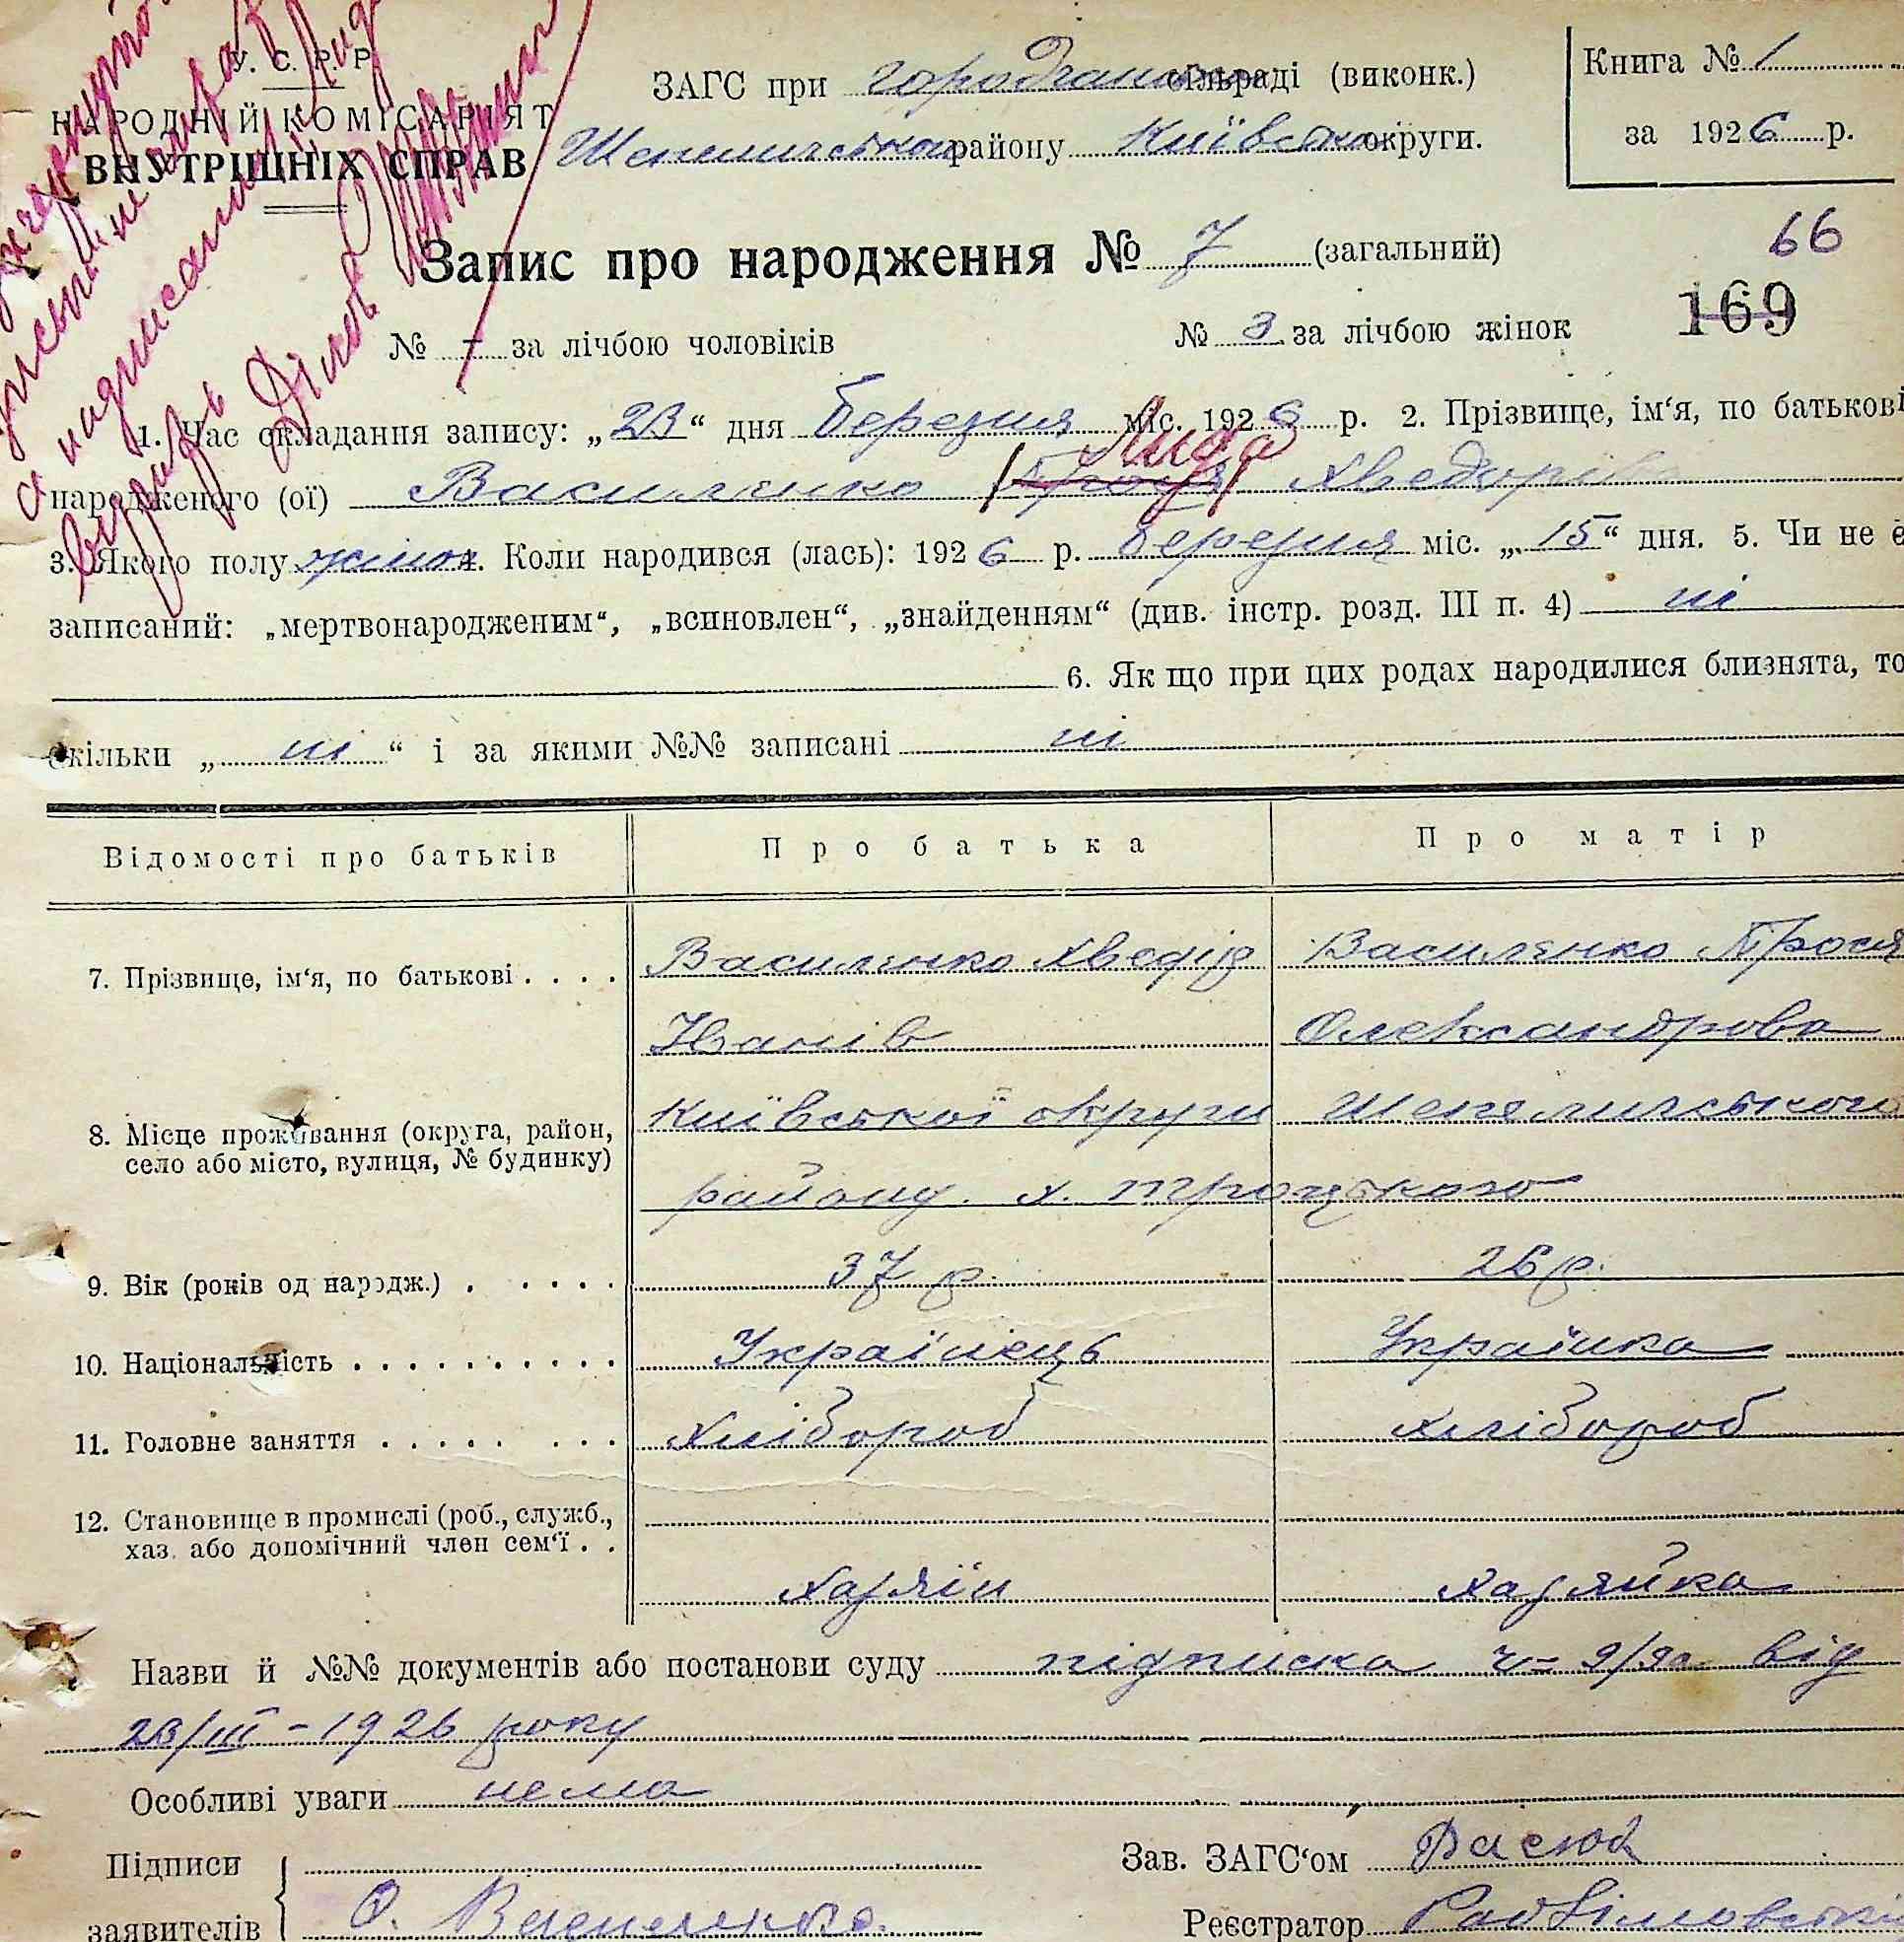 У. С. Р. Р.
НАРОДНІЙ КОМІСАРІЯТ
ВНУТРІШНІХ СПРАВ
ЗАГС при сільраді (виконк.)
району Київської округи.
Книга № 1
за 1926 р.
Запис про народження № 7 (загальний)
66
169
№ - за лічбою чоловіків № 3 за лічбою жінок
1. Час складання запису: „23“ дня березня міс. 1926 р. 2. Прізвище, ім‘я, по батькові
Лида
народженого (ої) Василенко Хведорівна
3. Якого полу жіноч. 4. Коли народився (лась): 1926 р. березня міс. „15“ дня. 5. Чи не є
записаний: „мертвонародженим“, „всиновлен“, „знайденням“ (див. інстр. розд. III п. 4) ні
6. Як що при цих родах народилися близнята, то
скільки „ ні “ і за якими №№ записані ні
Відомості про батьків Про батька Про матір
7. Прізвище, ім‘я, по батькові . . . . Василенко Хведір Василенко Прося
Іванів Олександрова
8. Місце проживання (округа, район, Київської округи Шепелицького
село або місто, вулиця, № будинку) району. х. Троцького
9. Вік (років од народж.) . . . . . 37 р. 26 р.
10. Національність . . . . . . . . . . Українець Українка
11. Головне заняття . . . . . . . . . Хлібороб Хлібороб
12. Становище в промислі (роб., служб.,
хаз. або допомічний член сем‘ї . . Хазяїн Хазяйка
Назви й №№ документів або постанови суду підписка ч- 9/9а від
23/III - 1926 року
Особливі уваги нема
Підписи
заявителів О. Василенко
Зав. ЗАГС‘ом
Реєстратор